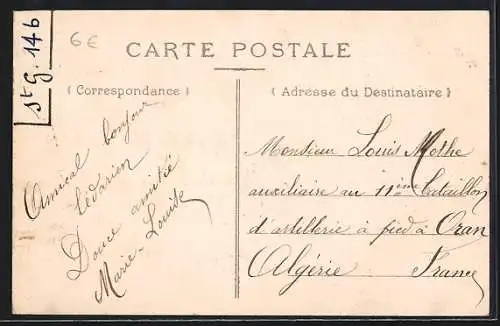 St G. 146
6€
CARTE POSTALE
(Correspondance)
(Adresse du Destinataire)
Amical bonjour
Lédarien
Douce amitié
Marie-Louise
Monsieur Louis Mothe
auxiliaire au 11ème bataillon
d'artillerie à pied à Oran
Algérie France